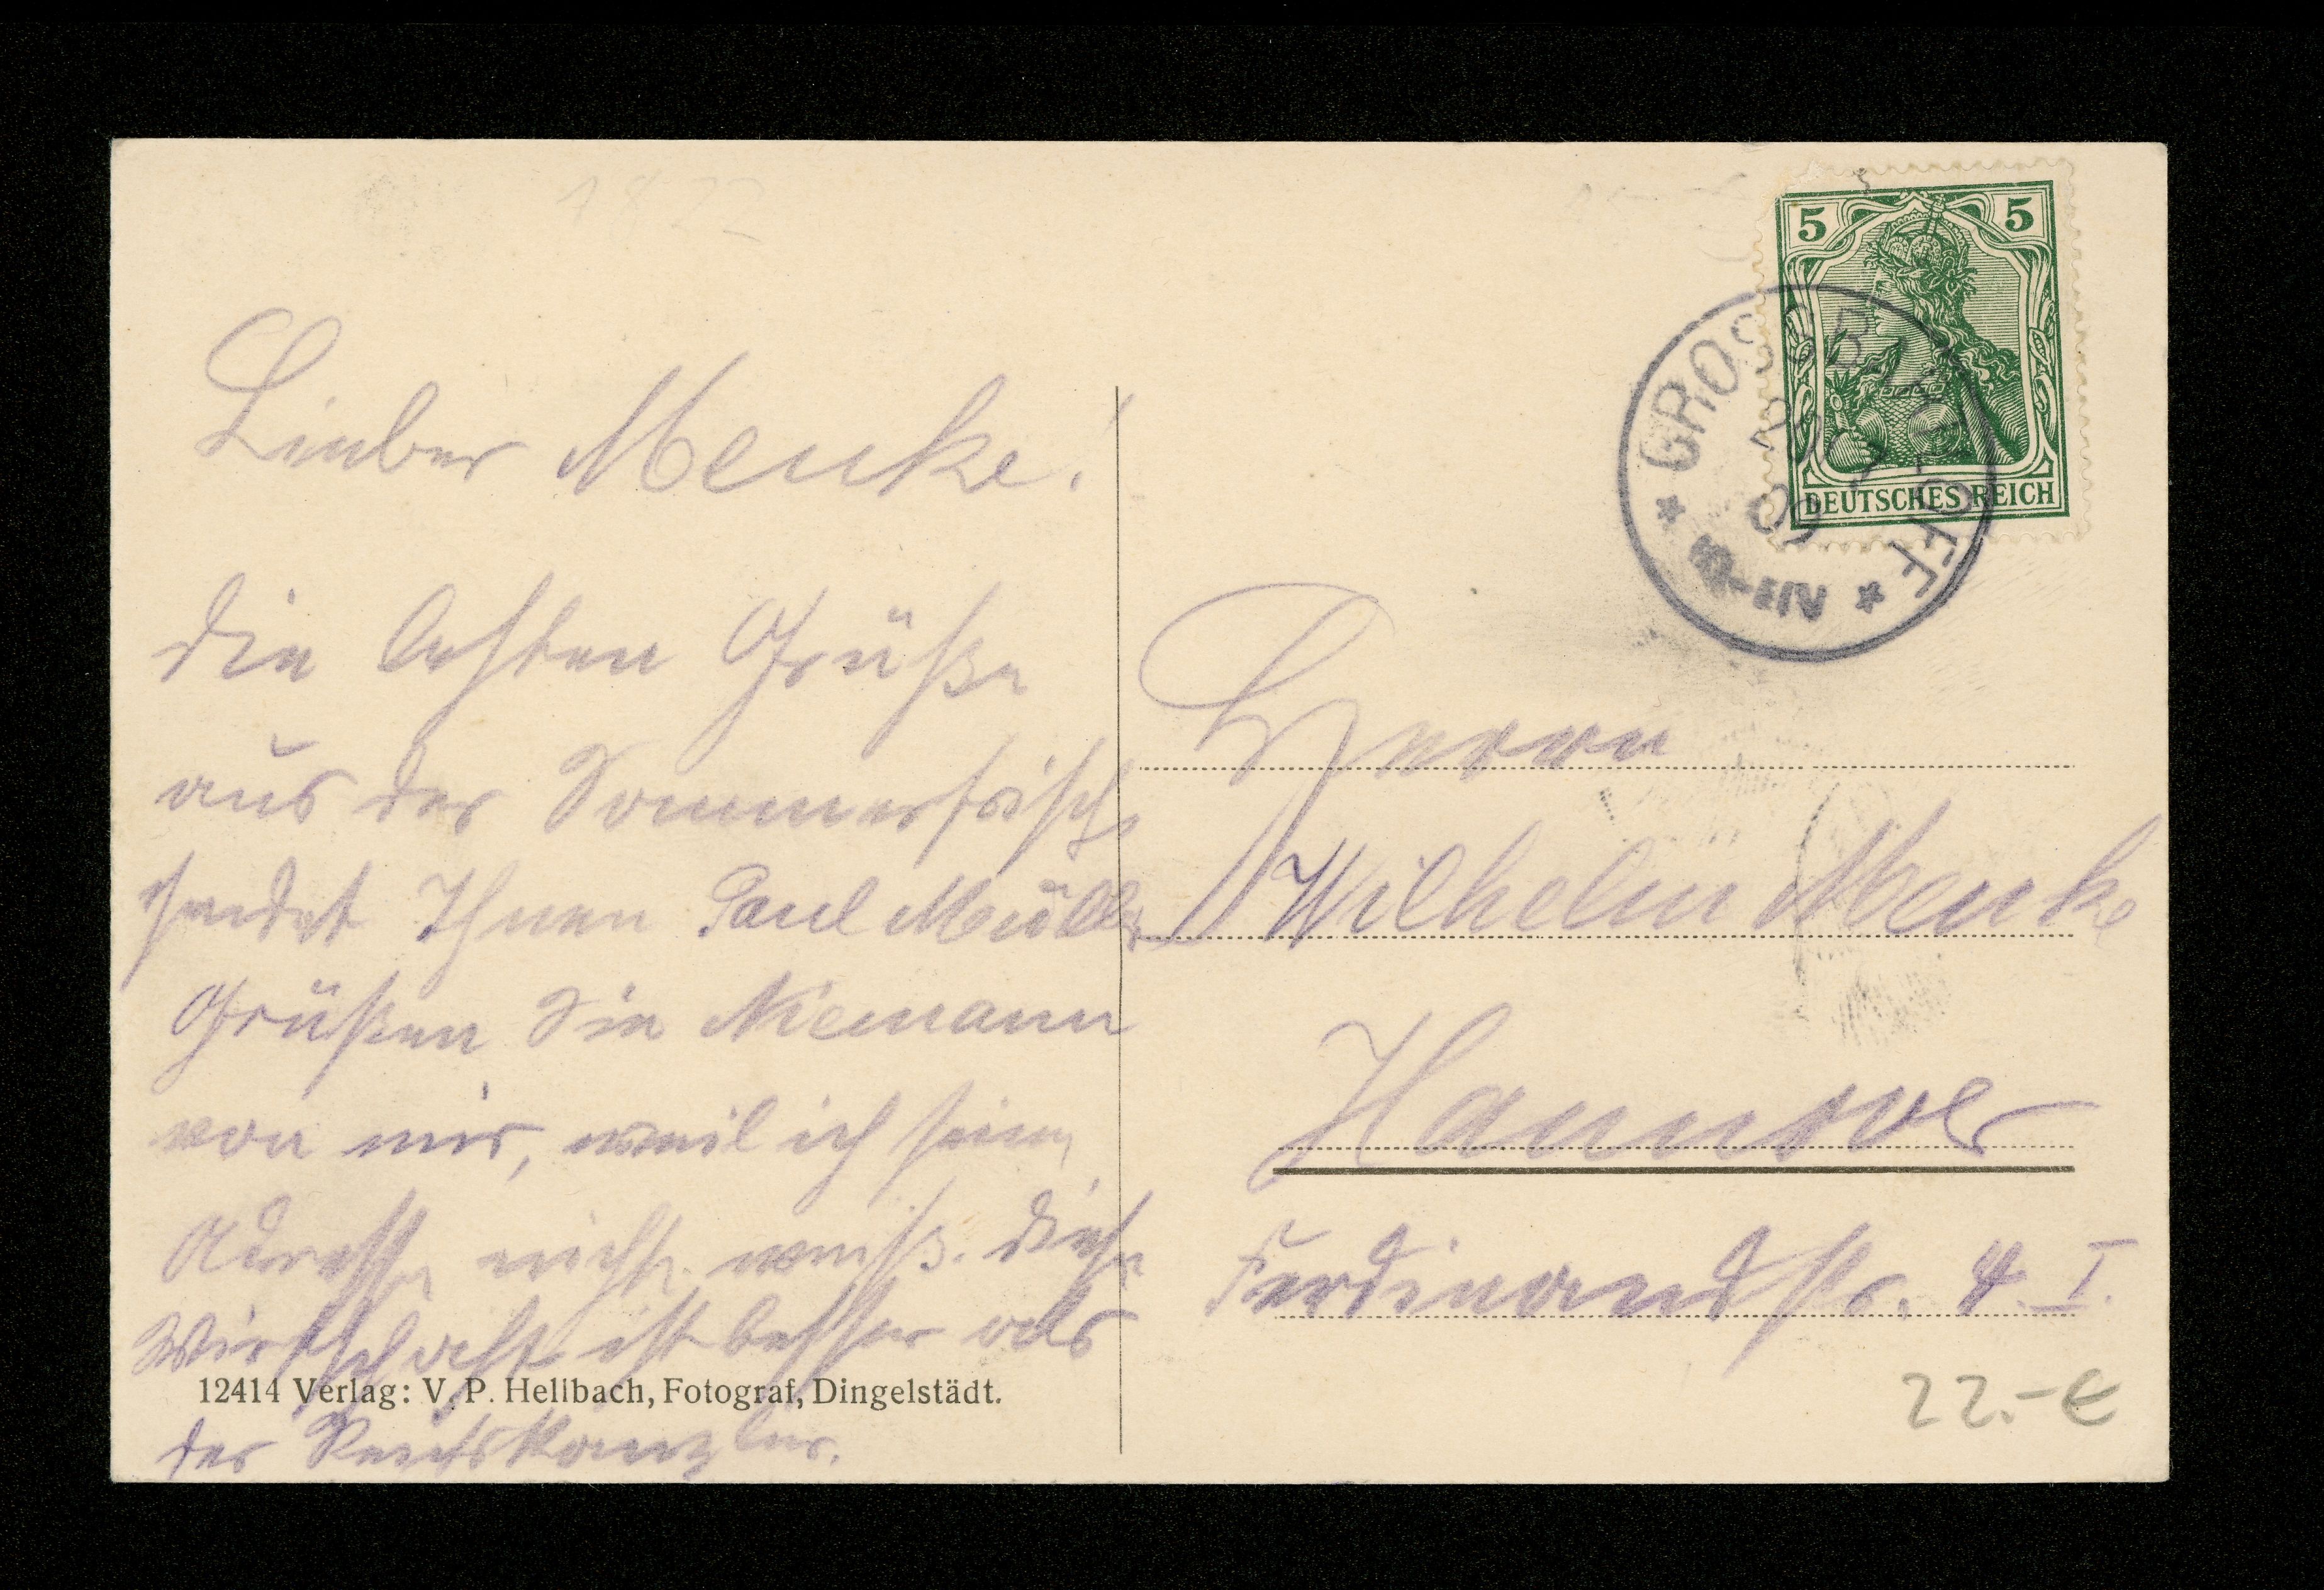 1822
Lieber Menke!
die besten Grüße
aus der Sommerfrische
sendet Ihnen Paul Müller
Grüßen Sie Niemann
von mir, weil ich seine
Adresse nicht weiß. Diese
Wirtschaft ist besser als
12414 Verlag: V. P. Hellbach, Fotograf, Dingelstädt.
der Reichskanzler.
5 5
DEUTSCHES REICH
* GROSSBARTLOFF *
09
8-9N
Herrn
Wilhelm Menke
Hannover
Ferdinandstr. 4. I.
22.-€